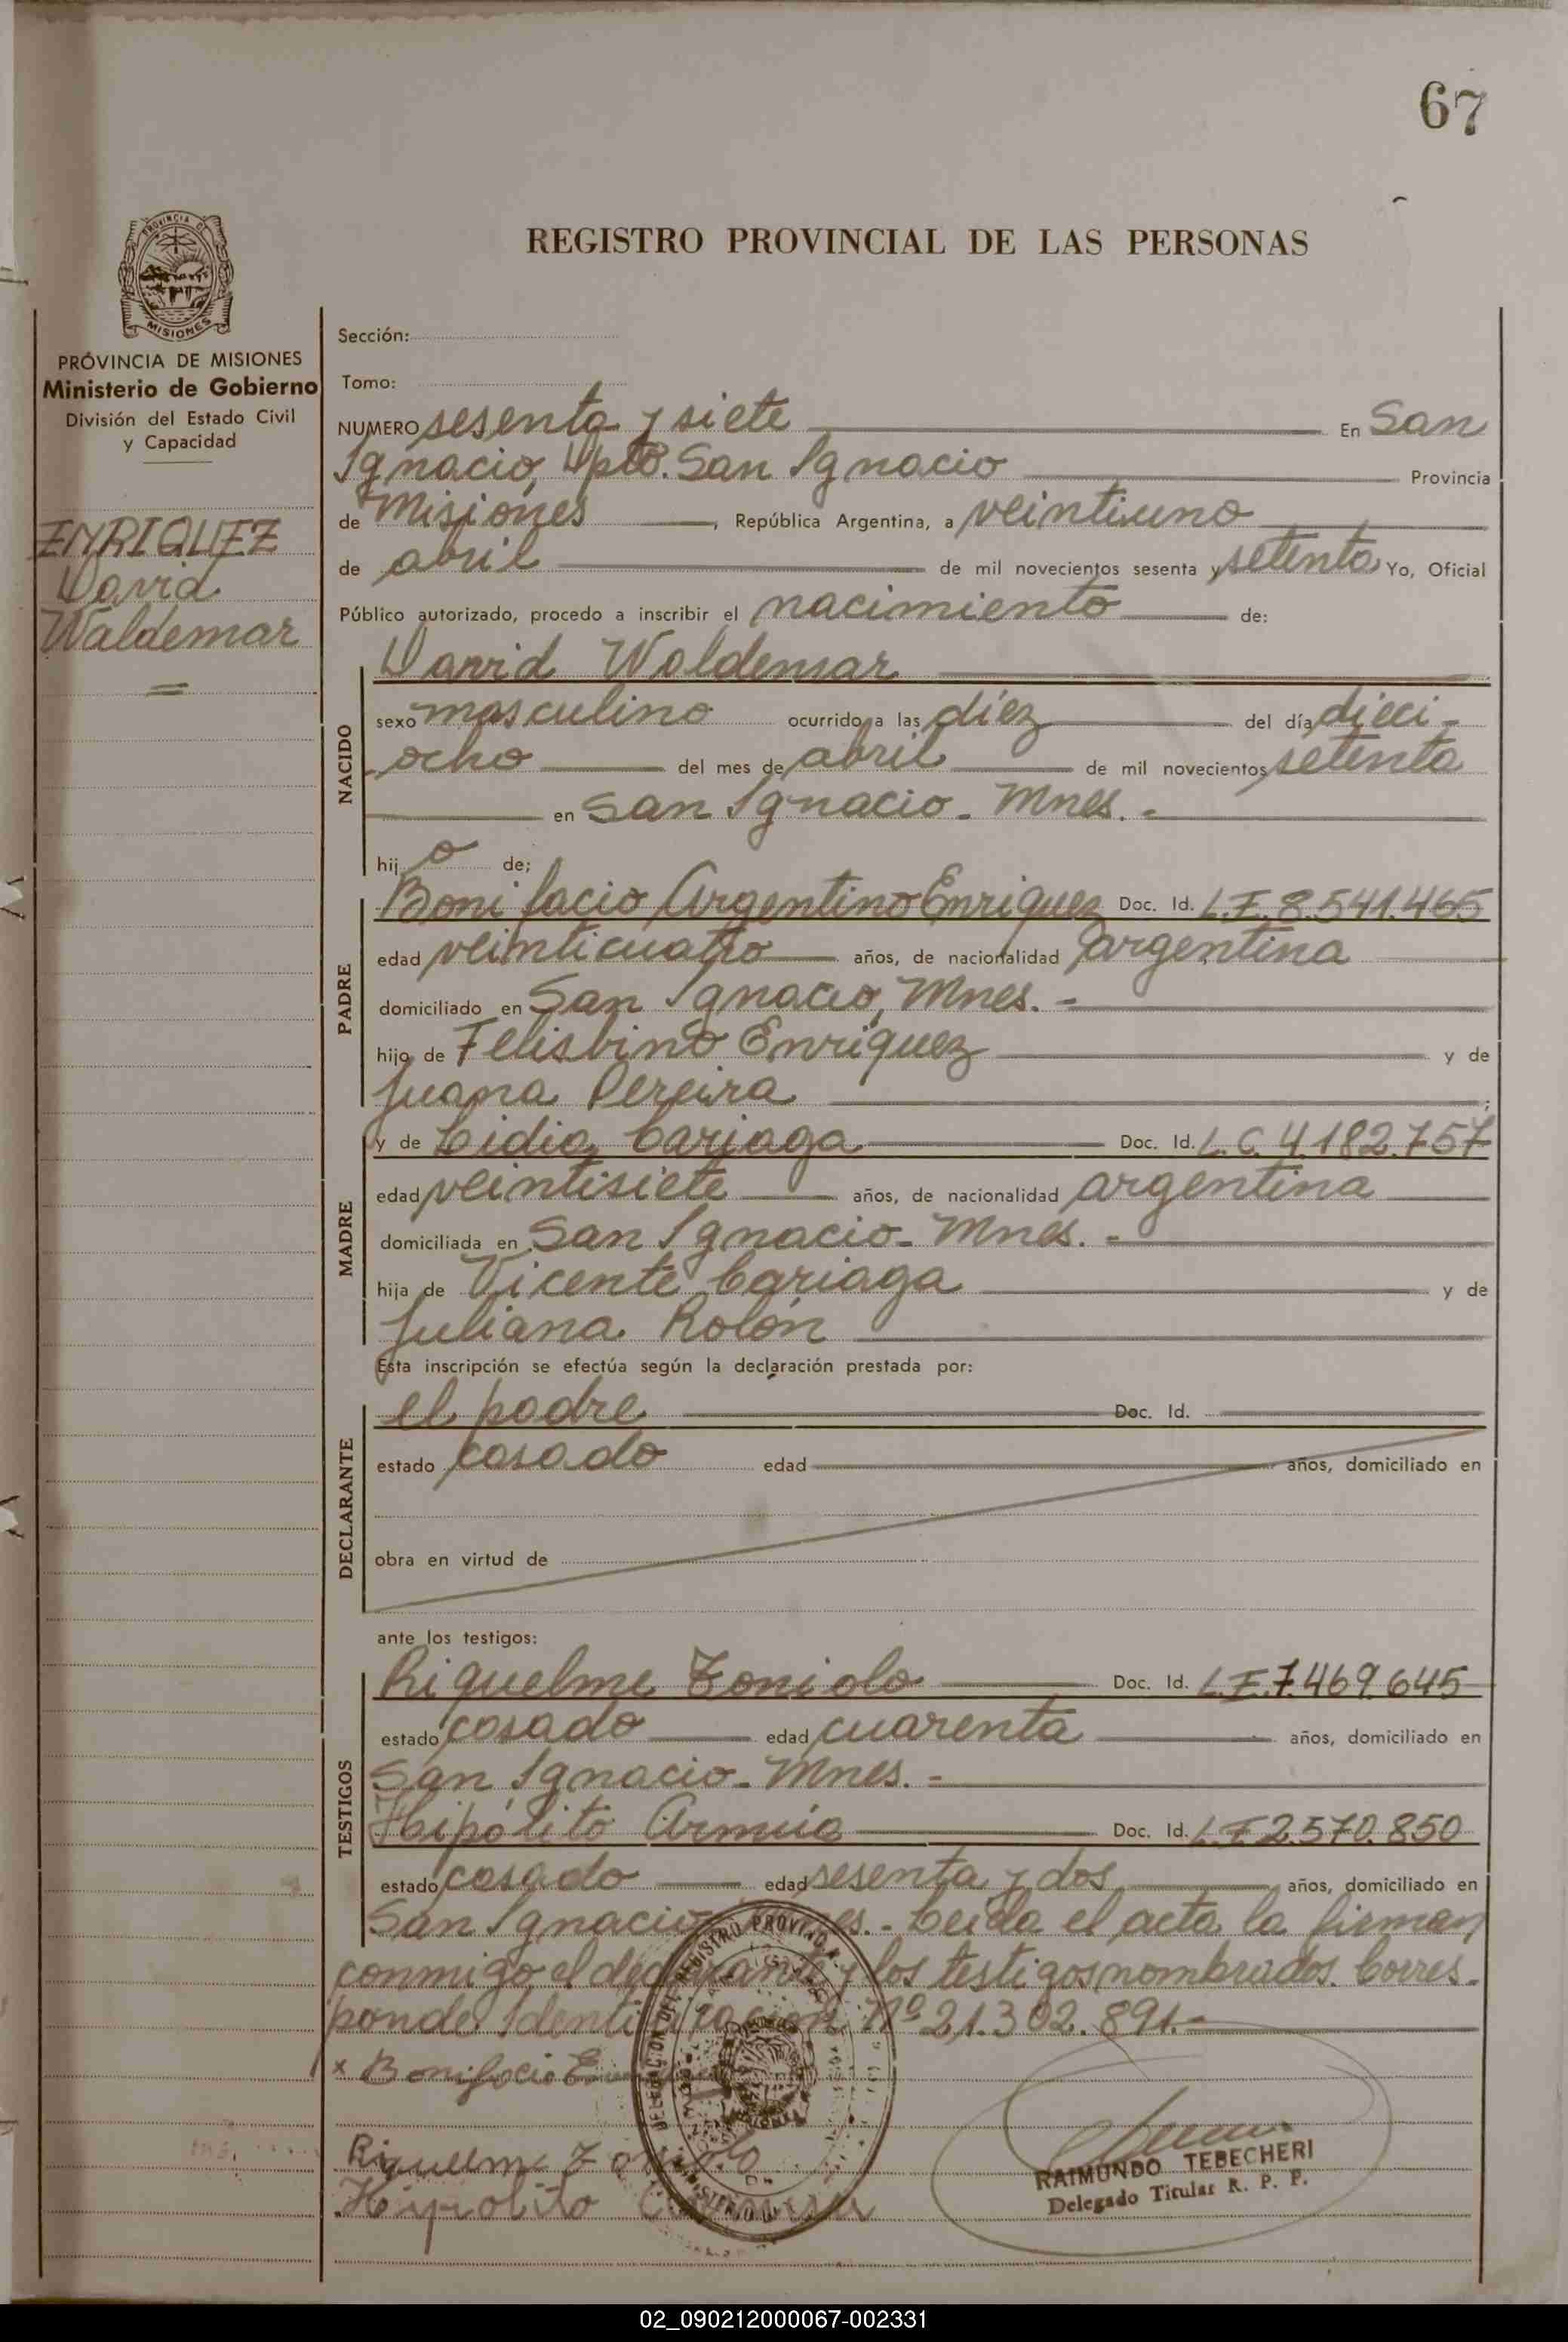 67
REGISTRO PROVINCIAL DE LAS PERSONAS
PROVINCIA DE
MISIONES
PROVINCIA DE MISIONES
Ministerio de Gobierno
División del Estado Civil
y Capacidad
ENRIQUEZ
David
Waldemar
Sección:
Tomo:
NUMERO sesenta y siete En San
Ignacio, Dpto. San Ignacio Provincia
de Misiones, República Argentina, a veintiuno
de abril de mil novecientos sesenta y setenta Yo, Oficial
Público autorizado, procedo a inscribir el nacimiento de:
David Waldemar
NACIDO
sexo masculino ocurrido a las diez del día dieci-
ocho del mes de abril de mil novecientos setenta
en San Ignacio - Mnes. -
hijo de;
PADRE
Bonifacio Argentino Enriquez Doc. Id. L.E. 8.541.465
edad veinticuatro años, de nacionalidad argentina
domiciliado en San Ignacio, Mnes. -
hijo de Felisbino Enriquez y de
Juana Pereira
MADRE
y de Lidia Cariaga Doc. Id. L.C. 4.182.757
edad veintisiete años, de nacionalidad argentina
domiciliada en San Ignacio - Mnes. -
hija de Vicente Cariaga y de
Juliana Rolón
Esta inscripción se efectúa según la declaración prestada por:
DECLARANTE
el padre Doc. Id.
estado casado edad años, domiciliado en
obra en virtud de
ante los testigos:
TESTIGOS
Riquelme Toniolo Doc. Id. L.E. 7.469.645
estado casado edad cuarenta años, domiciliado en
San Ignacio - Mnes. -
Hipólito Doc. Id. L.E. 2.570.850
estado casado edad sesenta y dos años, domiciliado en
San Ignacio Mnes. - Leida el acta la firman
conmigo el declarante y los testigos nombrados. Corres-
ponde Identificación Nº 21.302.891.-
x Bonifacio
Riquelme Toniolo
Hipolito
RAIMUNDO TEBECHERI
Delegado Titular R. P. P.
02_090212000067-002331